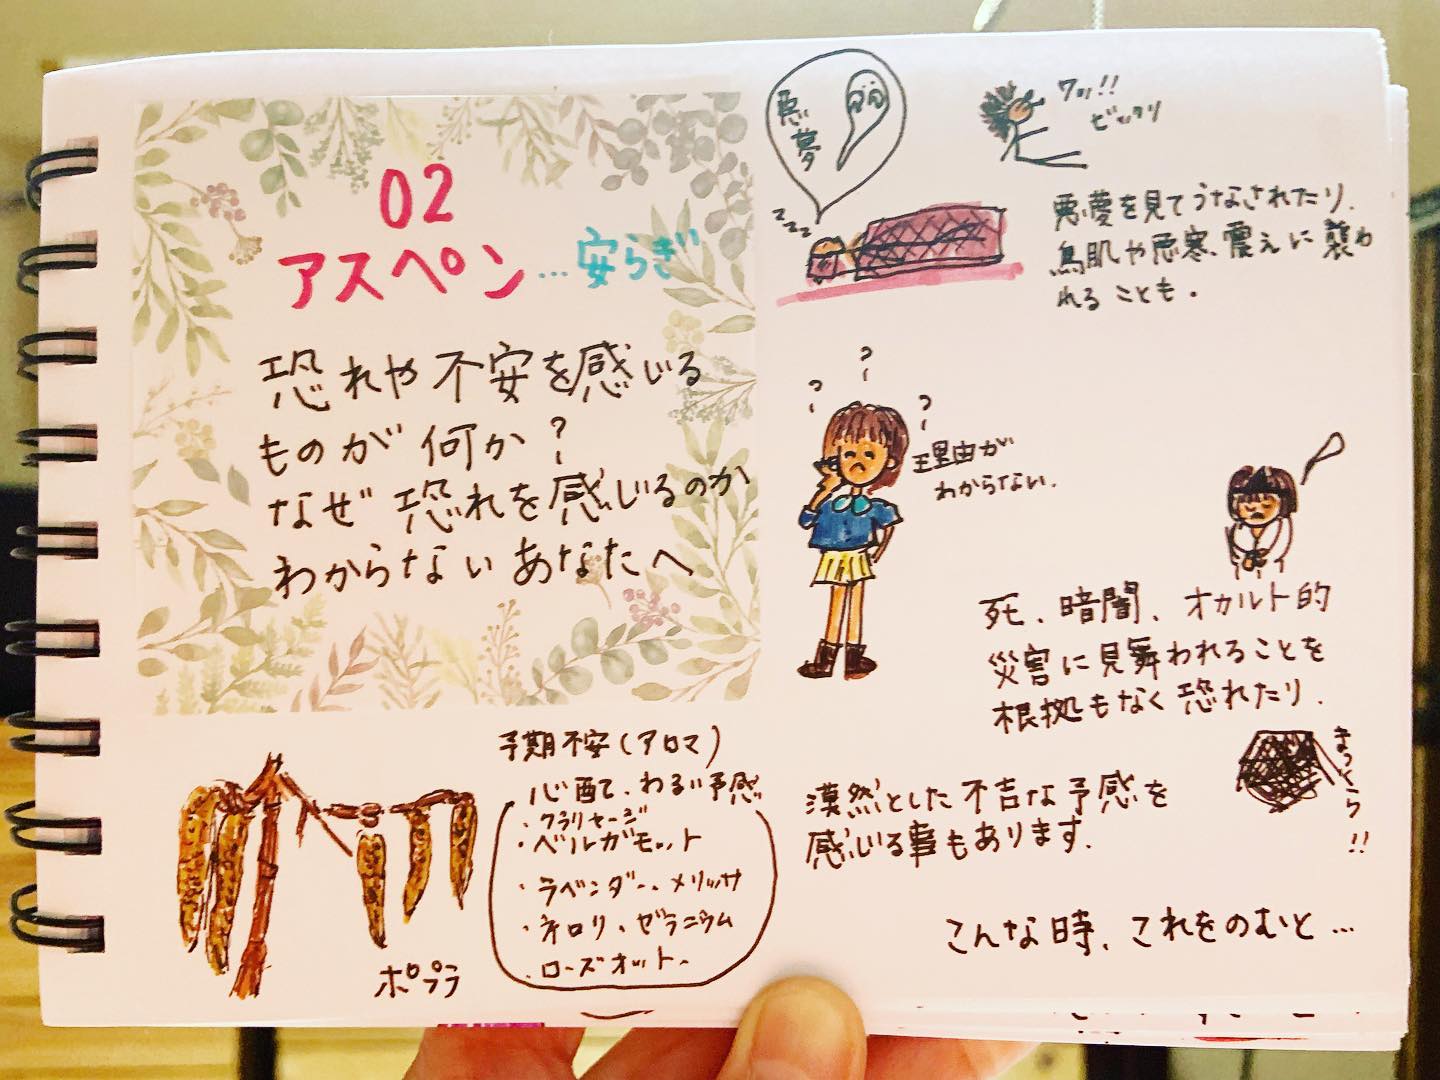 02
アスペン…安らぎ
恐れや不安を感じる
ものが何か？
なぜ恐れを感じるのか
わからないあなたへ
悪夢
zzz
ワッ!!
ビックリ
悪夢を見てうなされたり、
鳥肌や悪寒、震えに襲わ
れることも。
? ? ?
理由が
わからない。
死、暗闇、オカルト的
災害に見舞われることを
根拠もなく恐れたり、
まっくら!!
漠然とした不吉な予感を
感じる事もあります。
こんな時、これをのむと…
ポプラ
予期不安(アロマ)
心配て、わるい予感
・クラリセージ
・ベルガモット
・ラベンダー、メリッサ
・ネロリ、ゼラニウム
・ローズオットー